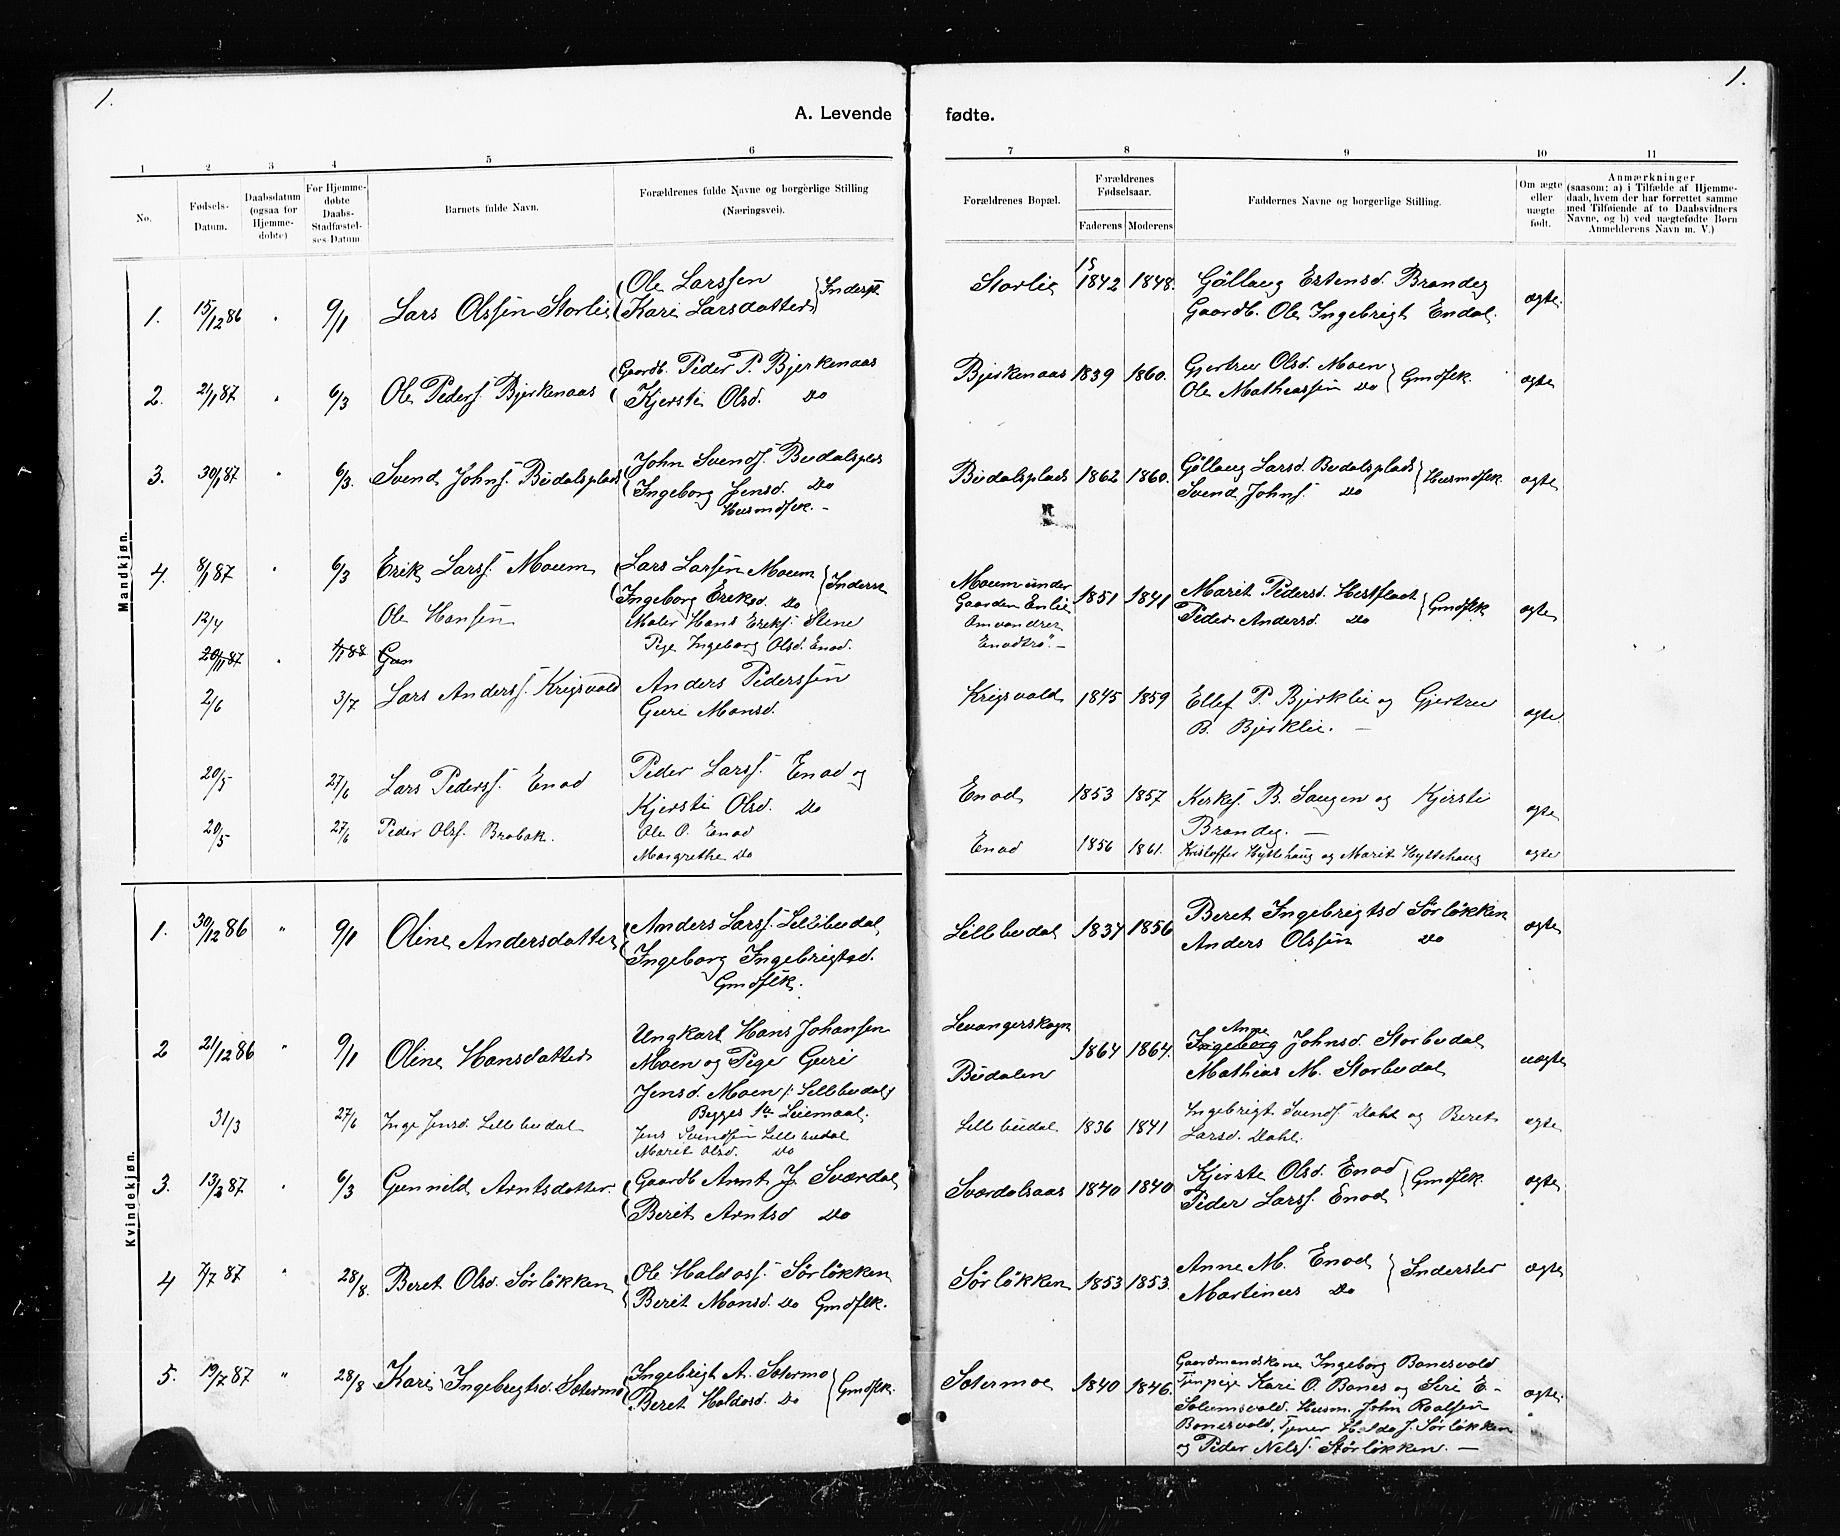 1.
1.
A. Levende fødte.
1 2 3 4 5 6 7 8 9 10 11
No.
Fødsels-Datum.
Daabsdatum (ogsaa for Hjemme-døbte)
For Hjemme-døbte Daabs-Stadfæstel-ses-Datum
Barnets fulde Navn.
Forældrenes fulde Navne og borgerlige Stilling (Næringsvei).
Forældrenes Bopæl.
Forældrenes Fødselsaar.
Faderens Moderens
Faddernes Navne og borgerlige Stilling.
Om ægte eller uægte født.
Anmærkninger
(saasom: a) i Tilfælde af Hjemme-
daab, hvem der har forrettet samme
med Tilføiende af to Daabsvidners
Navne, og b) ved uægtefødte Børn
Anmelderens Navn m. V.)
Mandkjøn.
1. 15/12 86 " 9/1 Lars Olssen Storlie
Ole Larssen
Kari Larsdatter } Inderst
Storlie 1842 1848.
Göllaug Estensd. Brandeg
Gaardb. Ole Ingebrigt Endal.
ægte
2. 21/1 87 " 6/3 Ole Peders. Bjerkenaas
Gaardb. Peder P. Bjerkenaas
Kjersti Olsd. Do
Bjerkenaas 1839 1860.
Gjertru Olsd. Moen
Ole Mathiassen Do } Gmdflk.
ægte
3. 30/1 87 " 6/3. Svend Johns. Budalsplads
John Svends. Budalspls
Ingeborg Jensd. Do
Husmdflk. -
Budalsplads 1862 1860.
Göllaug Larsd. Budalsplads
Svend Johns. Do } Husmdflk
ægte
4. 8/1 87 " 6/3 Erik Larss. Moum
Lars Larsen Moum
Ingeborg Eriksd. Do } Inderst
Moum under
Gaarden Enlie
1851 1841
Marit Pedersd. Hestflaat
Peder Andersd. Do } Gmdflk
ægte
12/4 Ole Hansen
Maler Hans Eriks. Stene
Pige Ingeborg Olsd. Enod.
Omvandrer
Enodtrø". -
20/11 87 " 1/1 88 Gun
2/6 3/7 Lars Anderss. Krigsvold
Anders Pederssen
Guri Monsd.
Krigsvold 1845 1859
Ellef P. Bjerklie og Gjertru
B. Bjerklie. -
ægte
20/5 27/6 Lars Peders. Enod
Peder Larss. Enod og
Kjersti Olsd. Do
Enod 1853 1857
Kirkes. B. Saugen og Kjersti
Brandeg. -
ægte
20/5 27/6 Peder Olss. Brobak.
Ole O. Enod
Margrethe Do
Enod 1856 1861.
Kristoffer Hyttehaug og Marit Hyttehaug
ægte
Kvindekjøn.
1. 30/12 86 " 9/1 Oline Andersdatter
Anders Larss. Lillebudal
Ingeborg Ingebrigtsd.
Gmdflk.
Lillebudal 1837 1856
Beret Ingebrigtsd Sørløkken
Anders Olssen Do
ægte
2 21/12 86 " 9/1 Oline Hansdatter
Ungkarl Hans Johansen
Moen og Pige Guri
Jensd. Moen /: Lillebudal
Begges 1te Leiemaal.
Levangerskogn
Budalen
1864 1864.
Anne
Ingeborg Johnsd. Storbudal
Mathias M. Storbudal
uægte
31/3 27/6 Inge Jensd. Lillebudal
Jens Svendsen Lillebudal
Marit Olsd. Do
Lillebudal 1836 1841
Ingebrigt Svends. Dahl og Beret
Larsd. Dahl.
ægte
3. 13/2 87 " 6/3 Gunnild Arntsdatter.
Gaardb Arnt J. Sværdal
Berit Arntsd Do
Sværdalsaas 1840 1840
Kjersti Olsd. Enod
Peder Larss. Enod } Gmdflk.
ægte
4 7/7 87 " 28/8. Beret Olsd. Sørløkken
Ole Haldoss. Sørløkken
Berit Monsd. Do Gmdflk.
Sørløkken 1853 1853.
Anne M. Enod
Martinus Do } Inderster
ægte
5. 19/7 87 " 28/8 Kari Ingebrigtsd. Sætermo
Ingebrigt A. Sætermo
Beret Haldosd. Do } Gmdflk.
Sætermoe 1840 1846.
Gaardmandskone Ingeborg Bonesvold
Tjenpige Kari O. Bones og Seri E-
Solemsvold. Husm. John Roalsen
Bonesvold, Tjener Haldo J. Sørløkken
og Peder Nilss. Størløkken. -
ægte.